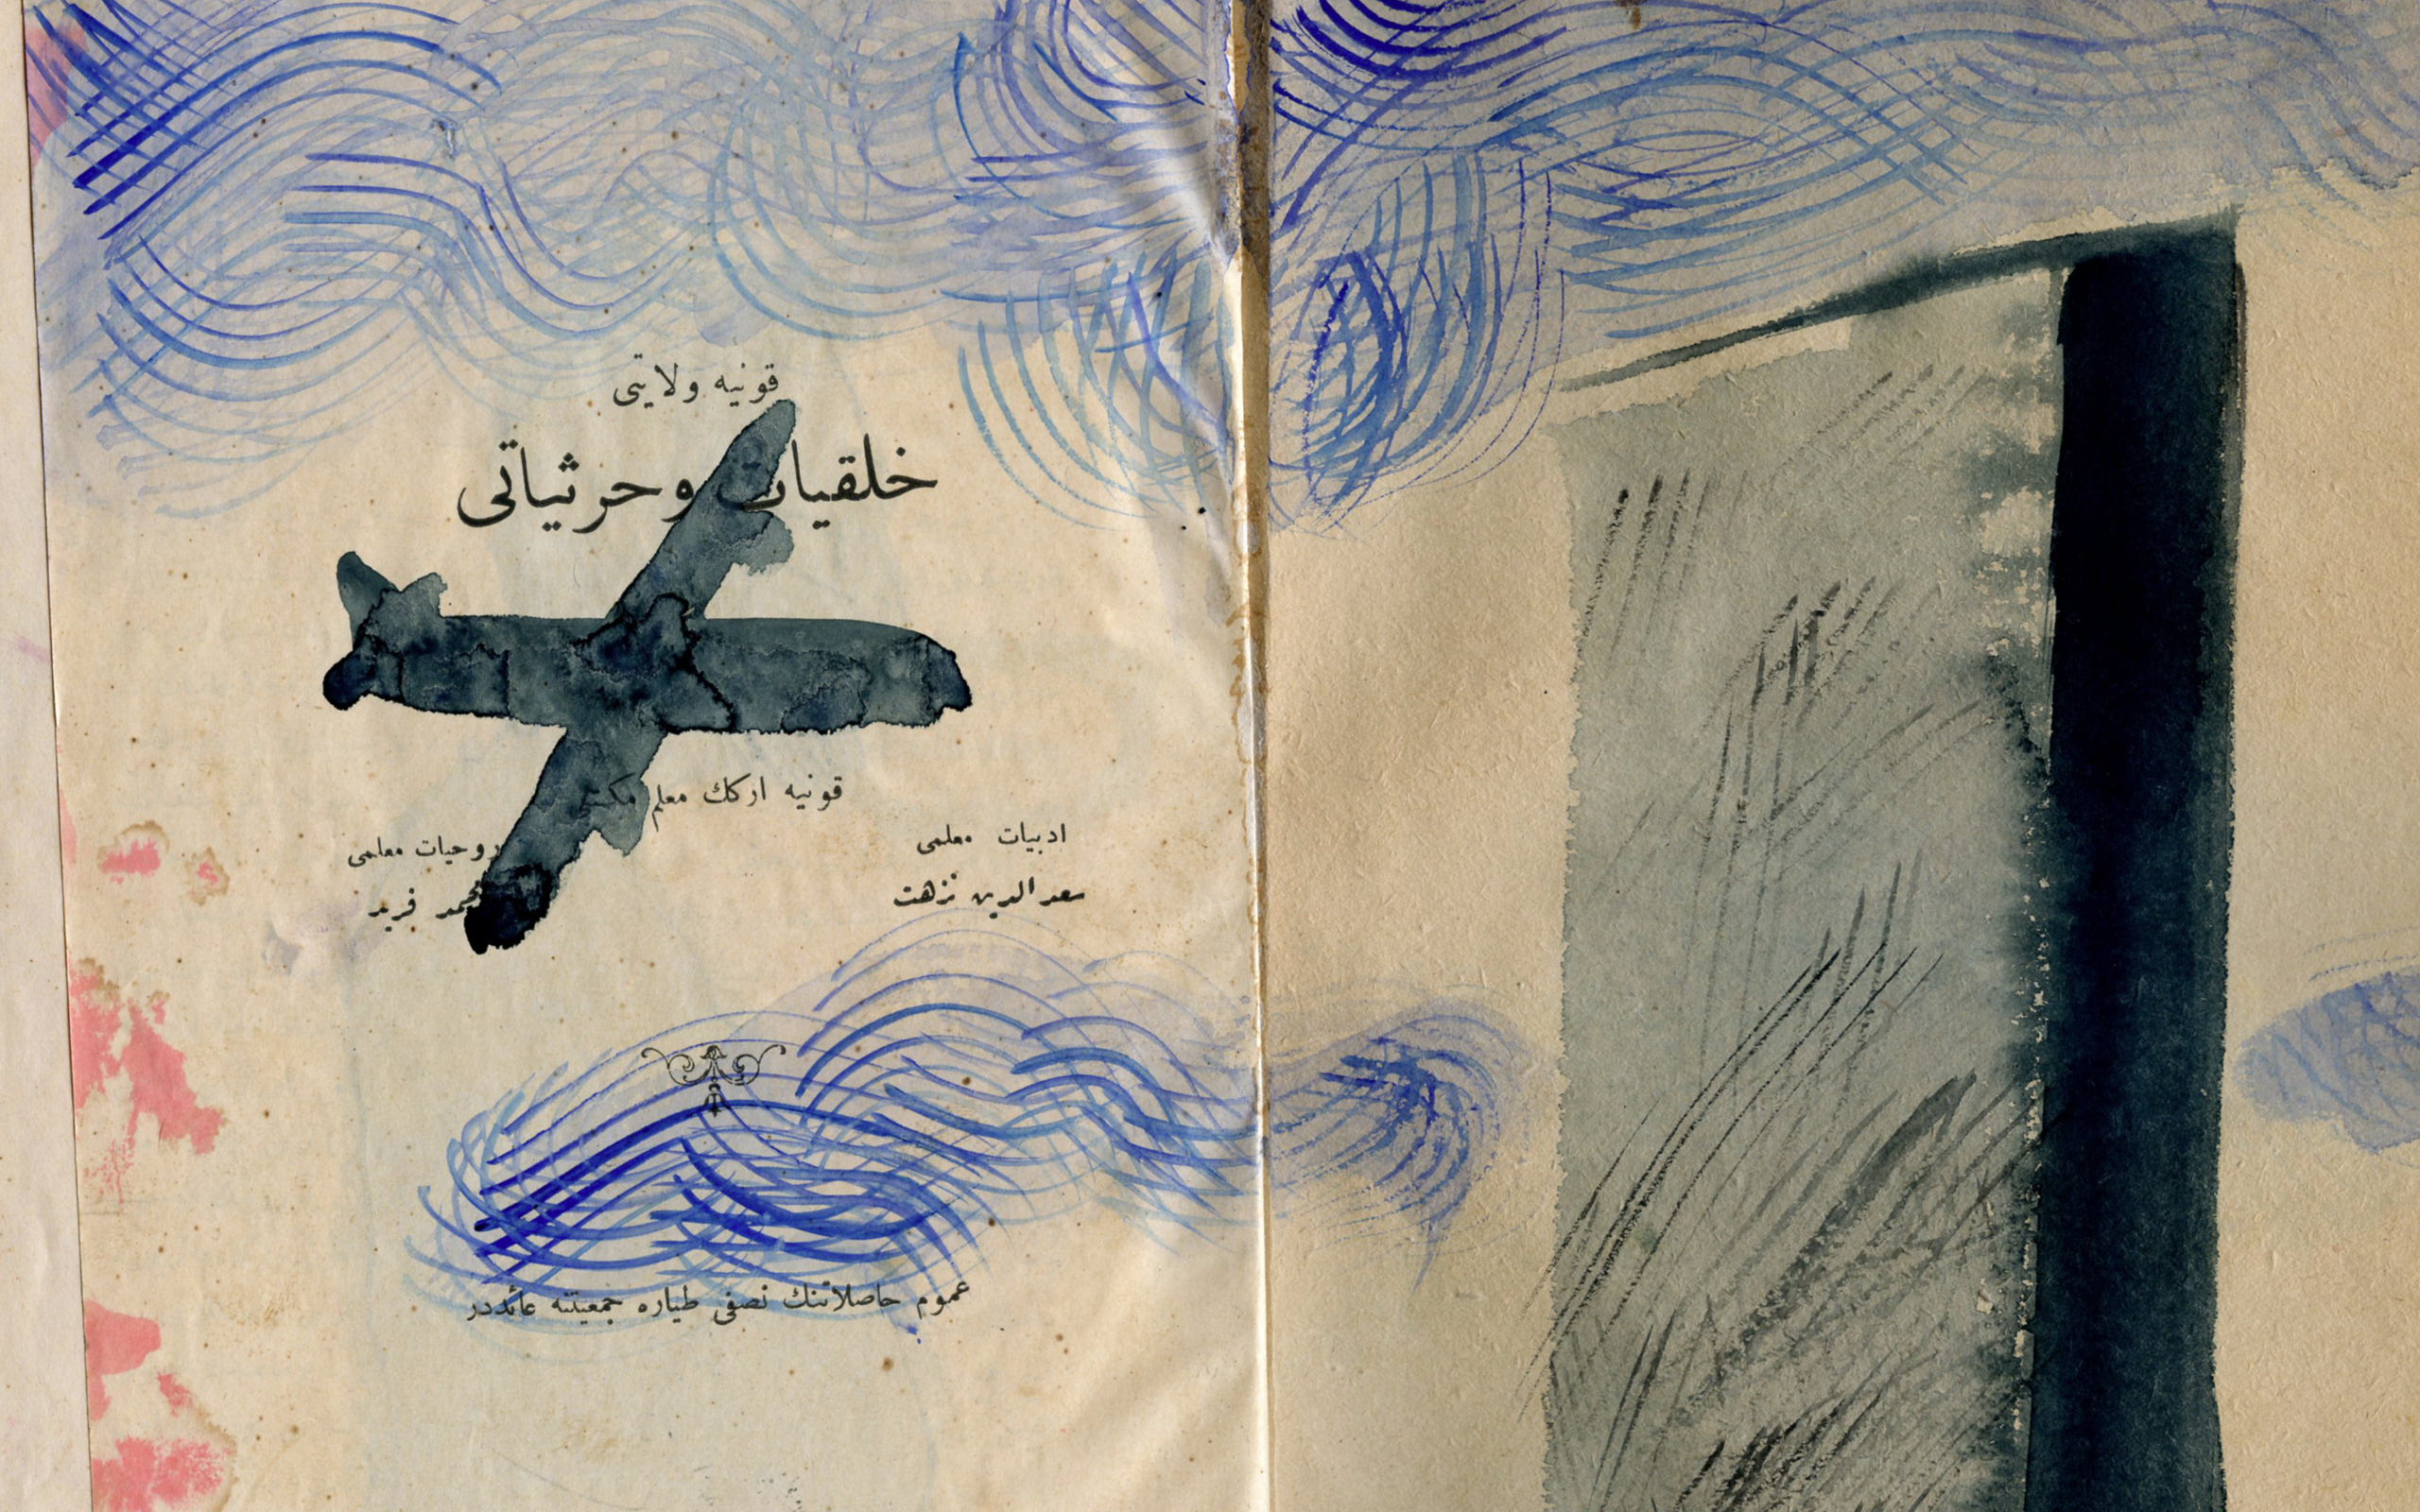 قونیه ولایتی
خلقیات وحرثیاتی
قونیه ارکك معلم مكتبی
ادبیات معلمی
سعدالدین نزهت
روحیات معلمی
محمد فرید
عموم حاصلاتنك نصفی طیاره جمعیتنه عائددر